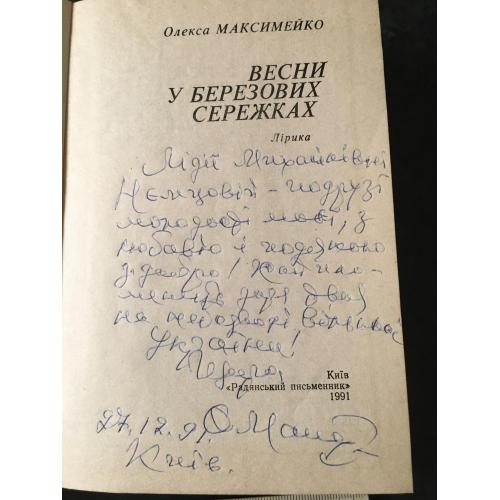 Олекса МАКСИМЕЙКО
ВЕСНИ
У БЕРЕЗОВИХ
СЕРЕЖКАХ
Лірика
Лідії Михайлівні
Нємцовій – подрузі
молодості моєї, з
любов'ю і подякою
за добро! Хай пло-
меніть зоря двох
на небозводі вільної
України!
Щиро,
Київ
«Радянський письменник»
1991
27.12.91.
Київ.